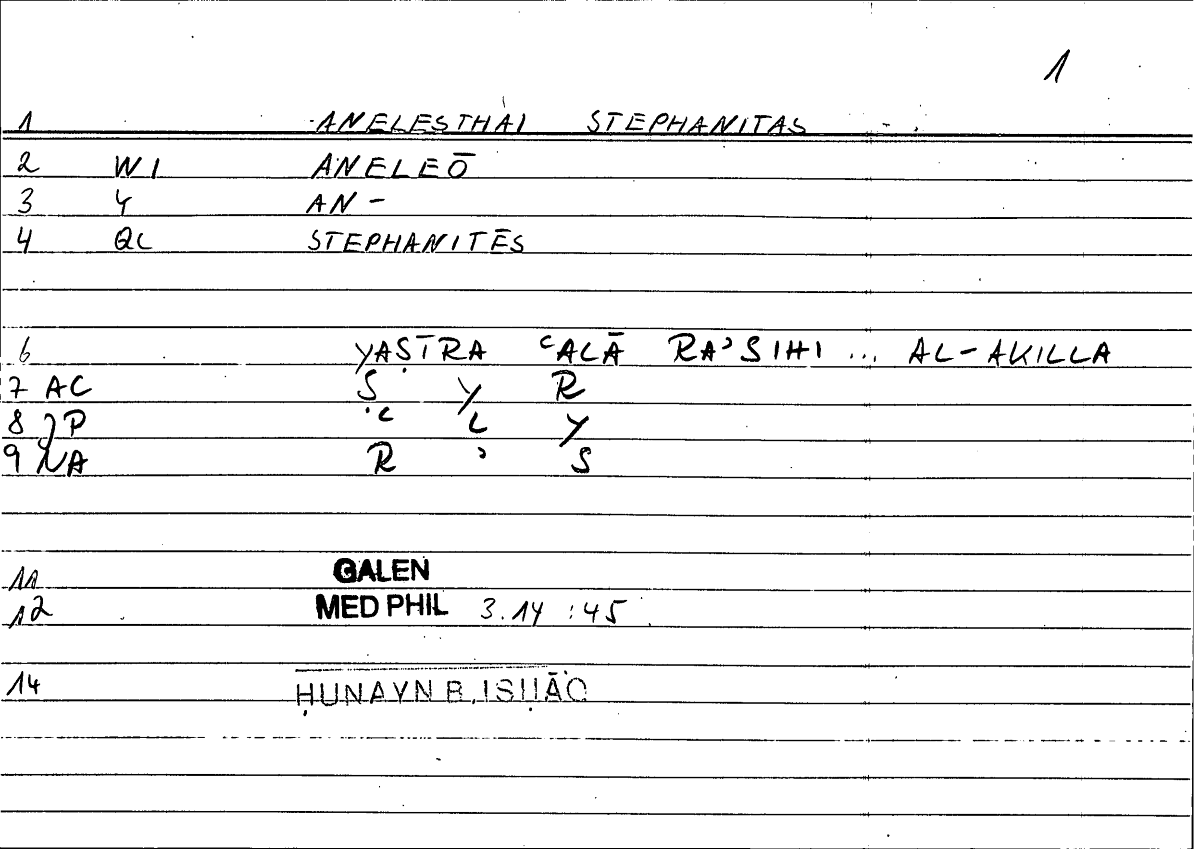 1
1 ANELESTHAI STEPHANITAS
2 WI ANELEŌ
3 Y AN-
4 QL STEPHANITĒS
6 YAṢĪRA ʿALĀ RAʾSIHI ... AL-AKILLA
7 AC Ṣ Y R
8 P ʿ L Y
9 NA R ʾ S
11 GALEN
12 MED PHIL 3.14 :45
14 ḤUNAYN B. ISḤĀQ